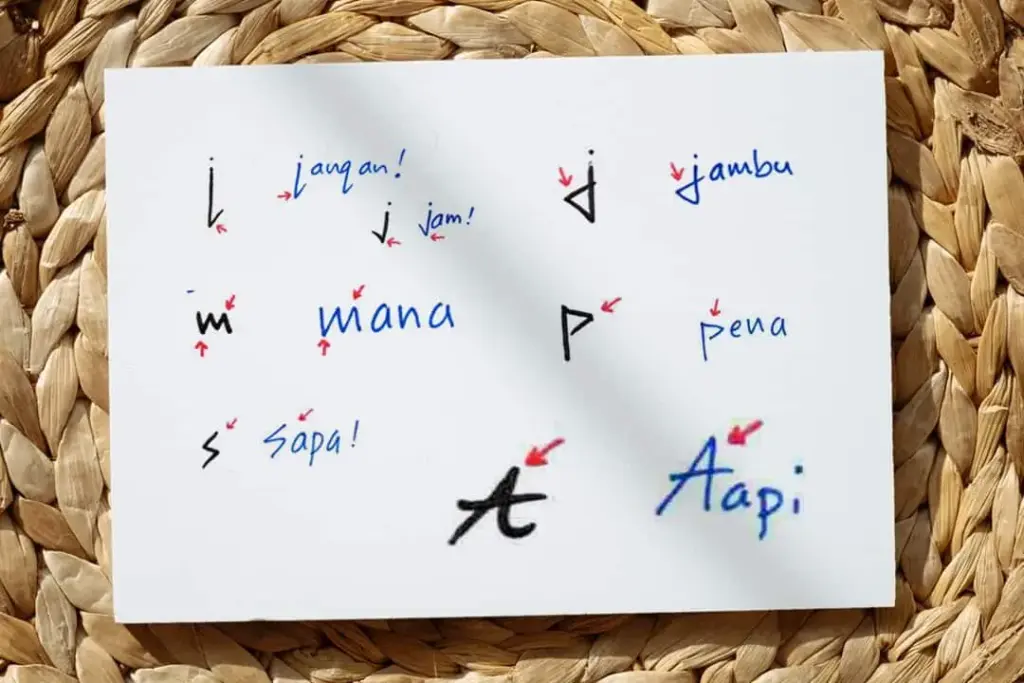 j jangan! j jambu
j jam!
m mana p pena
s sapa!
A Aapi